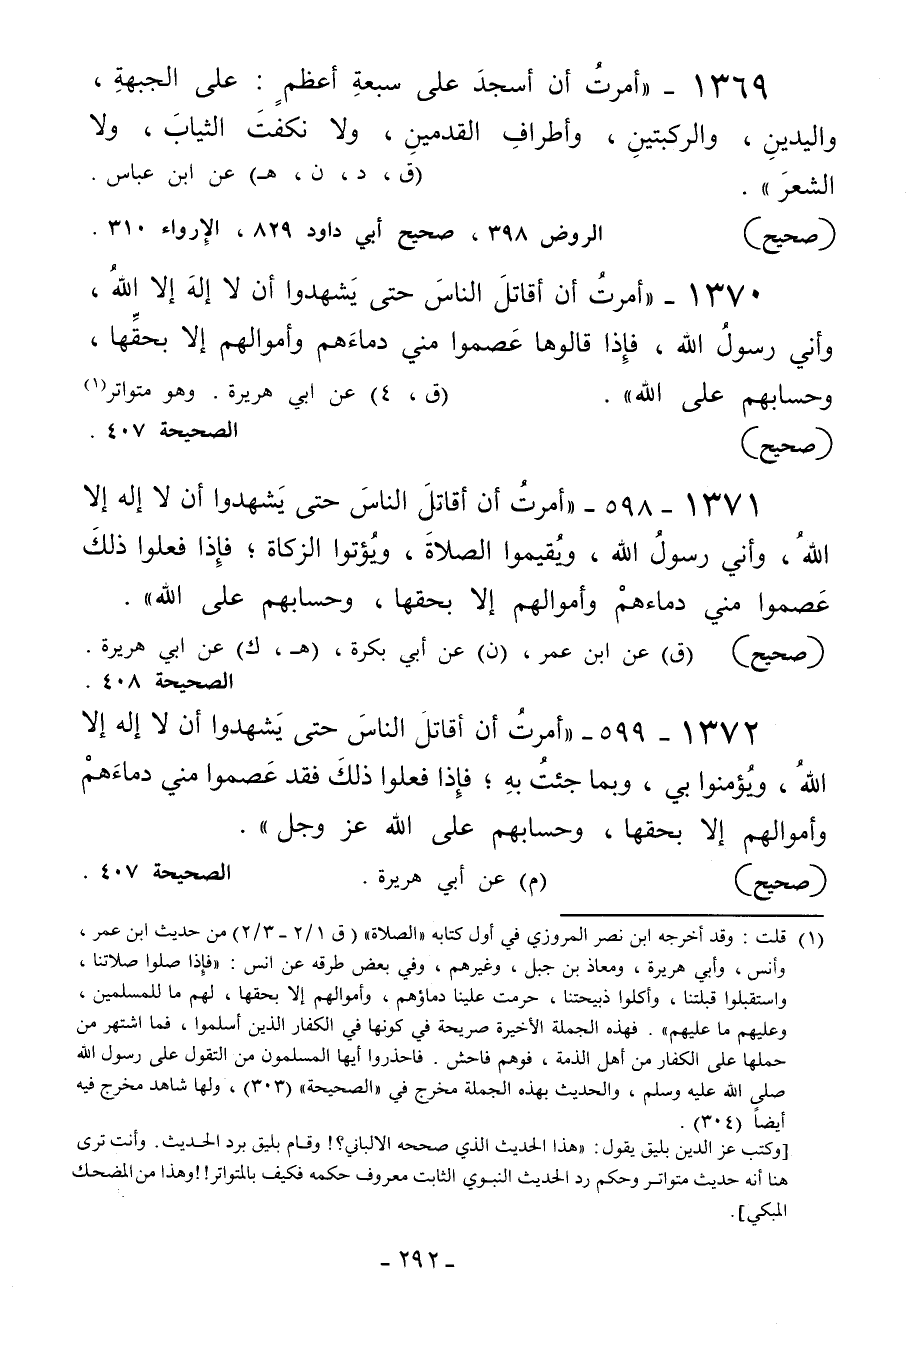 ١٣٦٩ - «أمرتُ أن أسجدَ على سبعةِ أعظمٍ : على الجبهةِ ،
واليدينِ ، والركبتينِ ، وأطرافِ القدمينِ ، ولا نكفتَ الثيابَ ، ولا
الشعرَ » . (ق ، د ، ن ، هـ) عن ابن عباس .
(صحيح) الروض ٣٩٨ ، صحيح أبي داود ٨٢٩ ، الإرواء ٣١٠ .
١٣٧٠ - «أمرتُ أن أقاتلَ الناسَ حتى يَشهدوا أن لا إلهَ إلا اللهُ ،
وأني رسولُ الله ، فإذا قالوها عَصموا مني دماءَهم وأموالهم إلا بحقِّها ،
وحسابهم على الله» . (ق ، ٤) عن ابي هريرة . وهو متواتر(١)
(صحيح) الصحيحة ٤٠٧ .
١٣٧١ - ٥٩٨ - «أمرتُ أن أقاتلَ الناسَ حتى يَشهدوا أن لا إله إلا
اللهُ ، وأني رسولُ الله ، ويُقيموا الصلاةَ ، ويُؤتوا الزكاة ؛ فإذا فعلوا ذلكَ
عَصموا مني دماءهمْ وأموالهم إلا بحقها ، وحسابهم على الله» .
(صحيح) (ق) عن ابن عمر ، (ن) عن أبي بكرة ، (هـ ، ك) عن ابي هريرة .
الصحيحة ٤٠٨ .
١٣٧٢ - ٥٩٩ - «أمرتُ أن أقاتلَ الناسَ حتى يَشهدوا أن لا إله إلا
اللهُ ، ويُؤمنوا بي ، وبما جئتُ بهِ ؛ فإذا فعلوا ذلكَ فقد عَصموا مني دماءَهمْ
وأموالهم إلا بحقها ، وحسابهم على الله عز وجل » .
(صحيح) (م) عن أبي هريرة . الصحيحة ٤٠٧ .
(١) قلت : وقد أخرجه ابن نصر المروزي في أول كتابه «الصلاة» ( ق ٢/١ - ٢/٣) من حديث ابن عمر ،
وأنس ، وأبي هريرة ، ومعاذ بن جبل ، وغيرهم ، وفي بعض طرقه عن انس : «فإذا صلوا صلاتنا ،
واستقبلوا قبلتنا ، وأكلوا ذبيحتنا ، حرمت علينا دماؤهم ، وأموالهم إلا بحقها ، لهم ما للمسلمين ،
وعليهم ما عليهم» . فهذه الجملة الأخيرة صريحة في كونها في الكفار الذين أسلموا ، فما اشتهر من
حملها على الكفار من أهل الذمة ، فوهم فاحش . فاحذروا أيها المسلمون من التقول على رسول الله
صلى الله عليه وسلم ، والحديث بهذه الجملة مخرج في «الصحيحة» (٣٠٣) ، ولها شاهد مخرج فيه
أيضاً (٣٠٤) .
[وكتب عز الدين بليق يقول: «هذا الحديث الذي صححه الالباني؟! وقام بليق برد الحديث. وأنت ترى
هنا أنه حديث متواتر وحكم رد الحديث النبوي الثابت معروف حكمه فكيف بالمتواتر!! وهذا من المضحك
المبكي].
- ٢٩٢ -